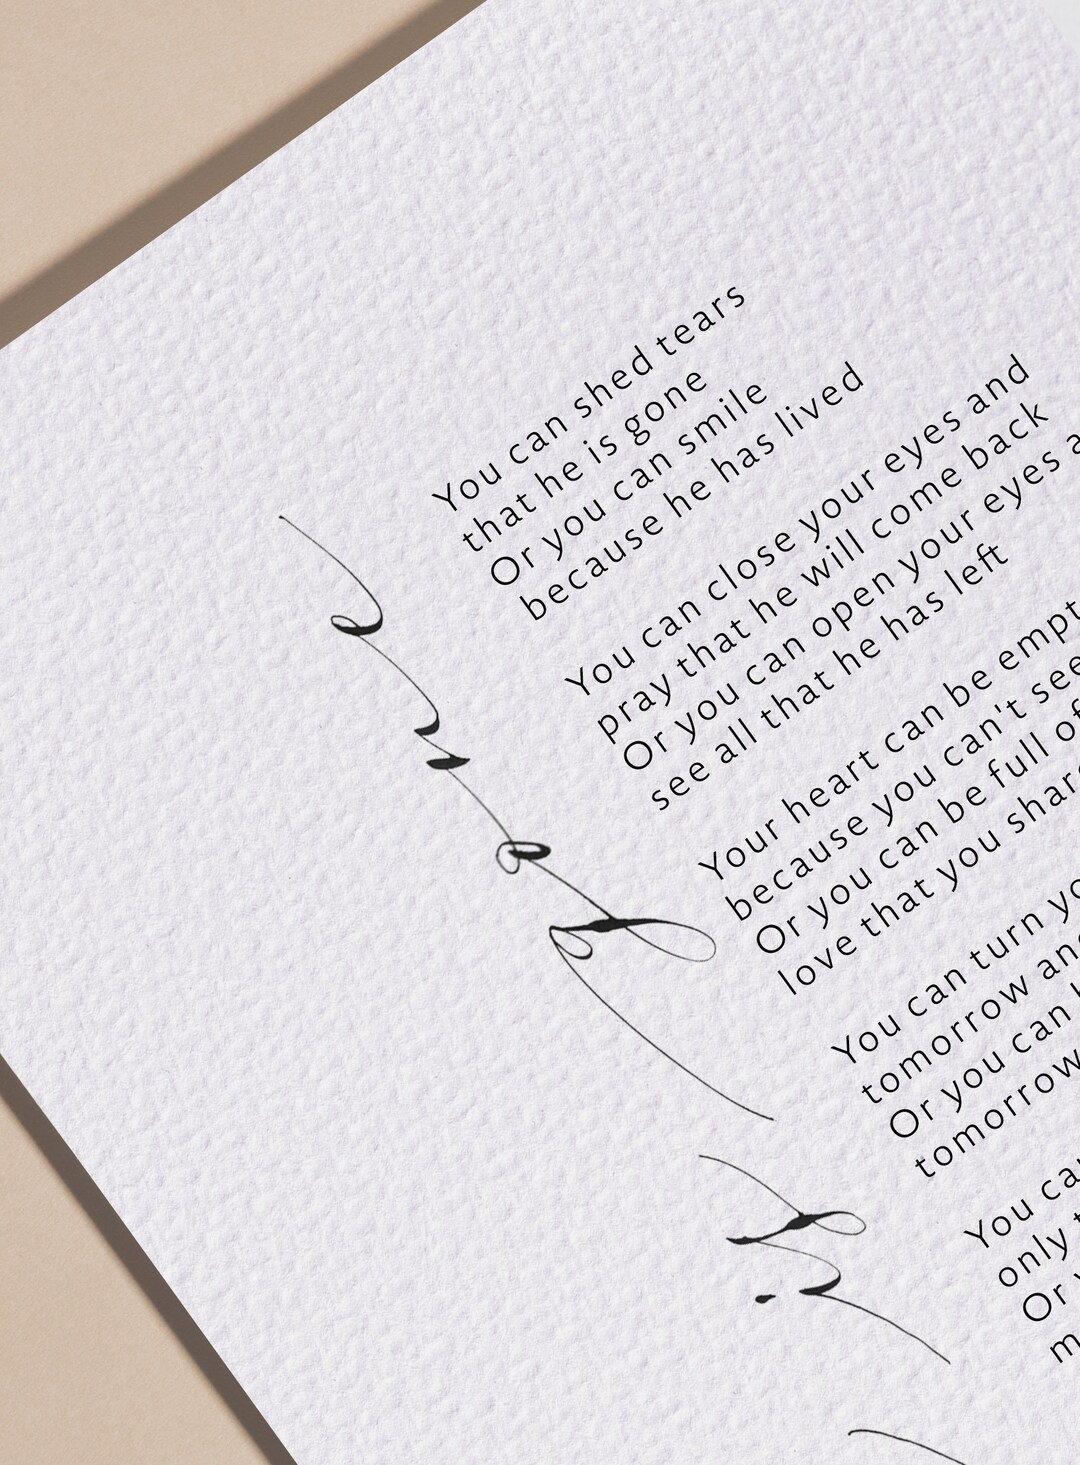 is gone
You can shed tears
that he is gone
Or you can smile
because he has lived
You can close your eyes and
pray that he will come back
Or you can open your eyes a
see all that he has left
Your heart can be empt
because you can't see
Or you can be full of
love that you share
You can turn yo
tomorrow an
Or you can
tomorrow
You ca
only
Or
m